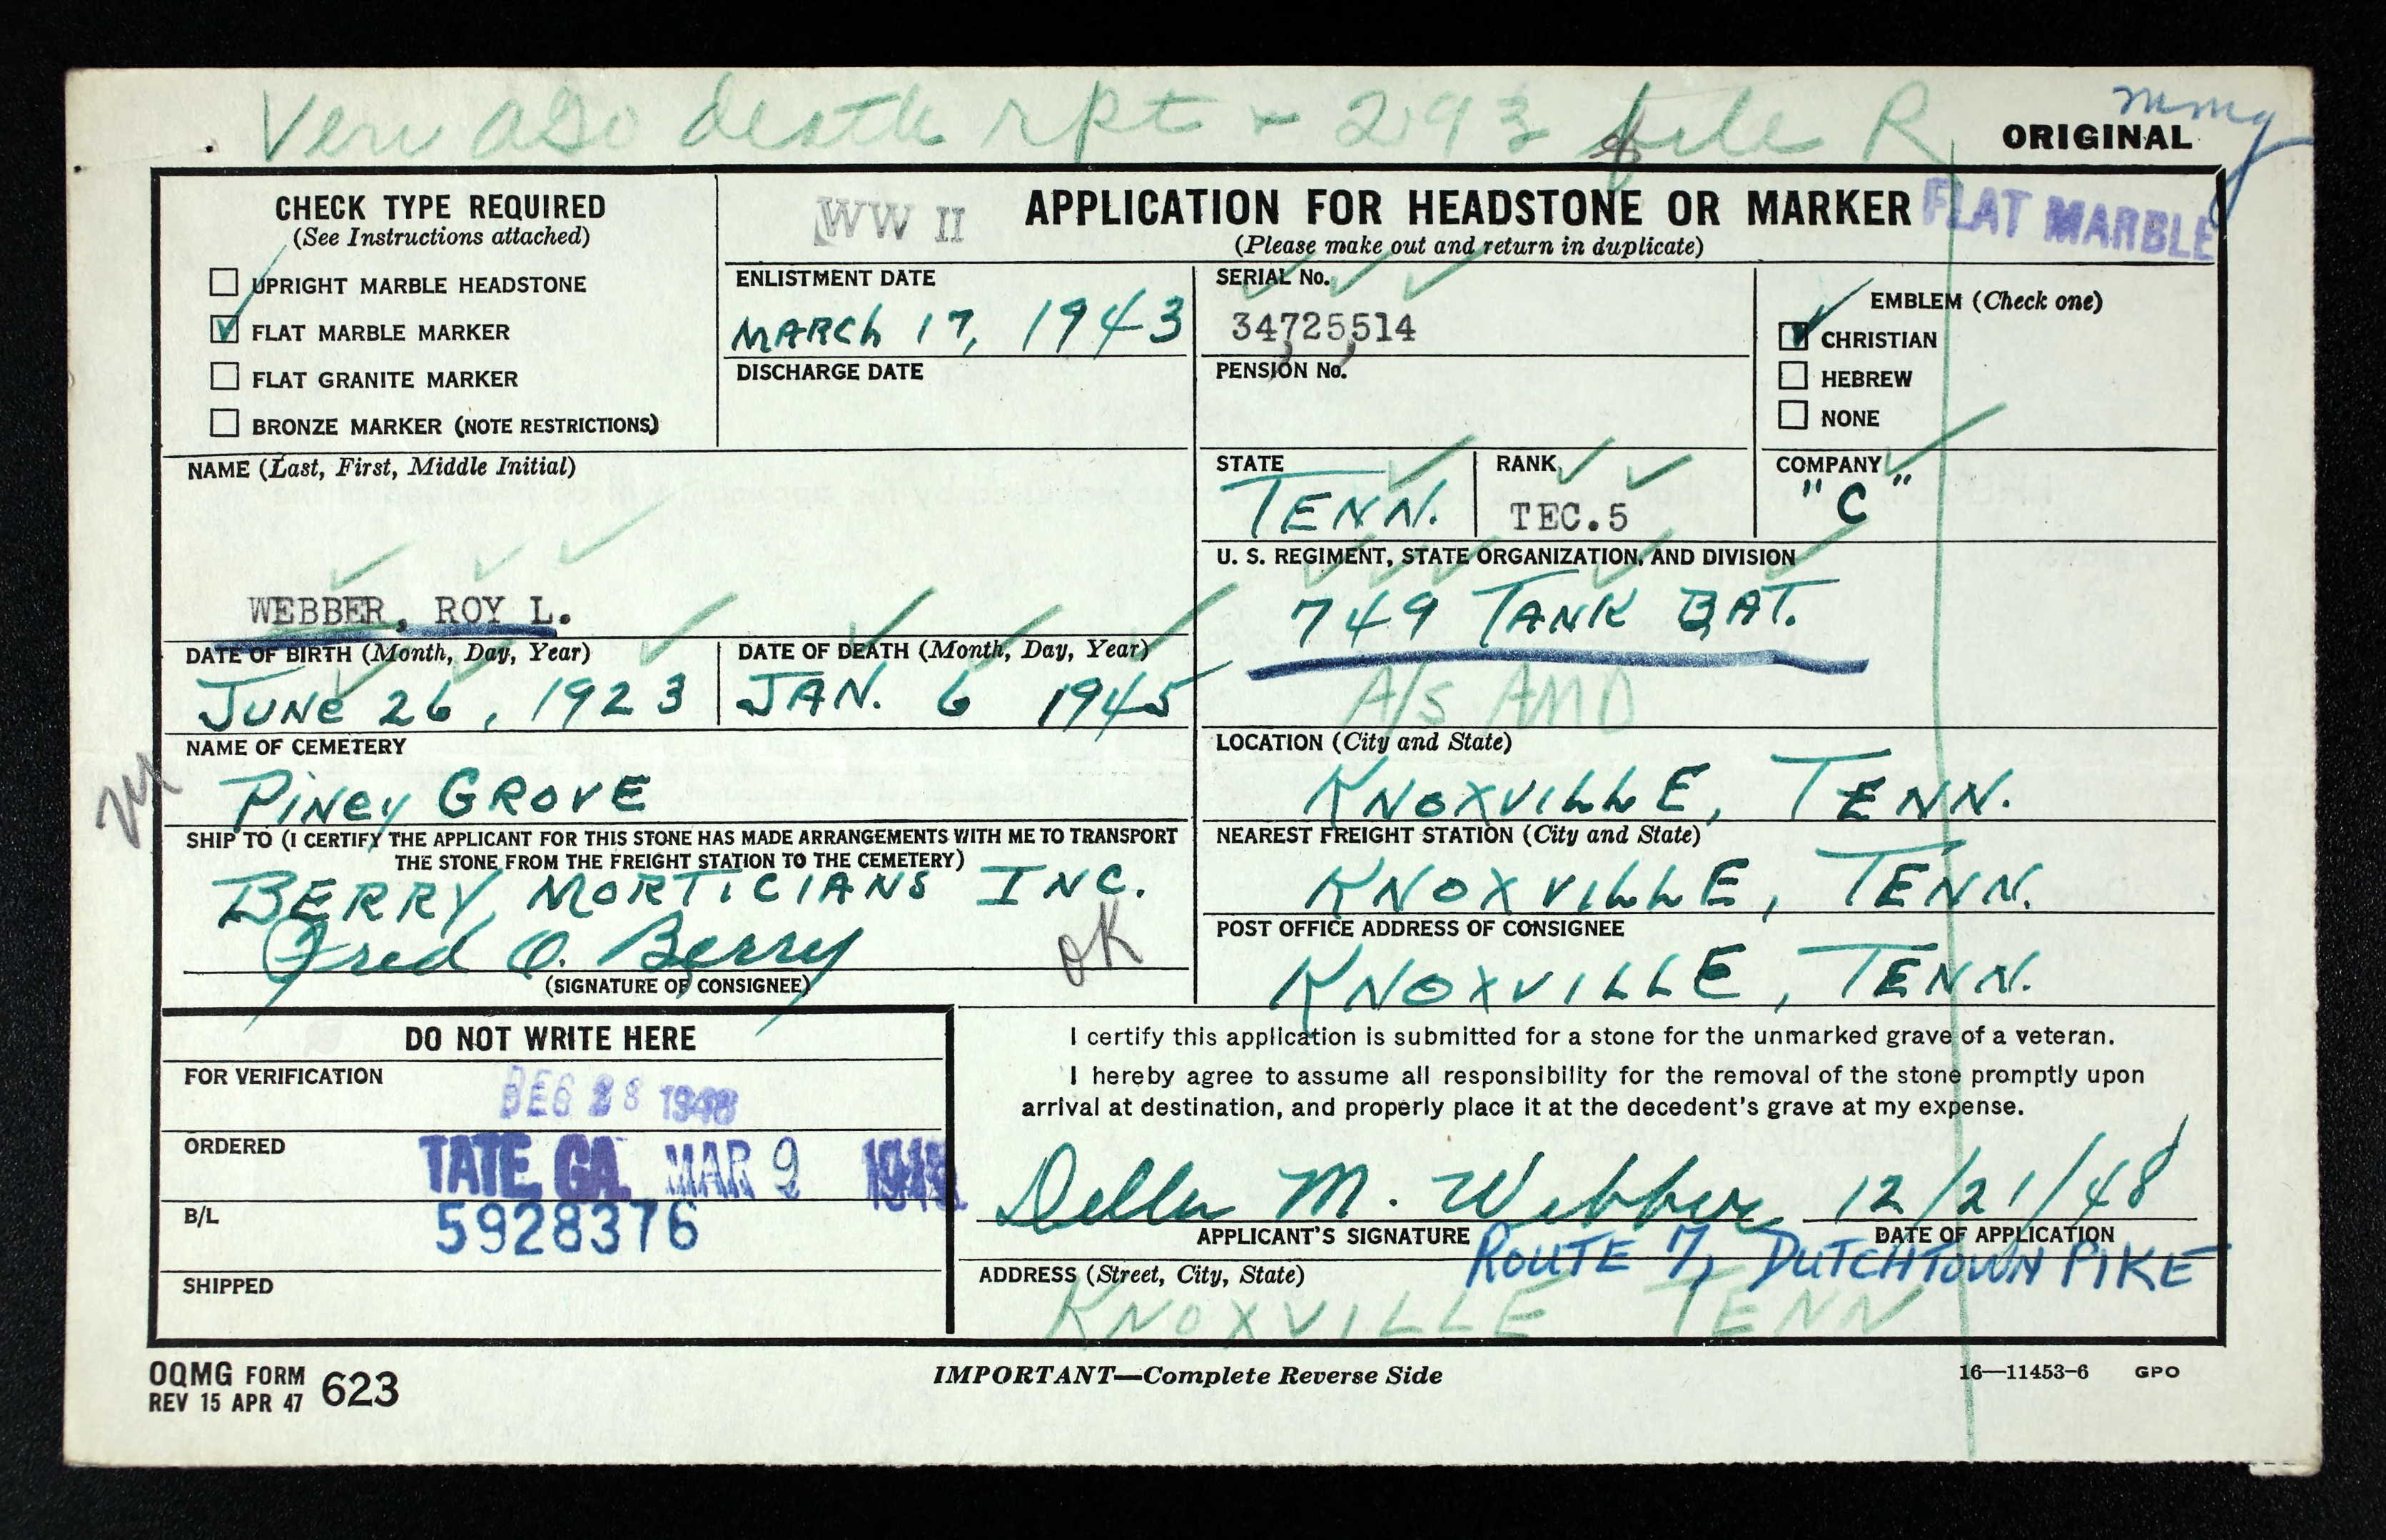 Veru ADO death rpt - 293 file R
mmg
ORIGINAL
CHECK TYPE REQUIRED
(See Instructions attached)
UPRIGHT MARBLE HEADSTONE
FLAT MARBLE MARKER
FLAT GRANITE MARKER
BRONZE MARKER (NOTE RESTRICTIONS)
WW II
APPLICATION FOR HEADSTONE OR MARKER
(Please make out and return in duplicate)
FLAT MARBLE
ENLISTMENT DATE
MARCH 17, 1943
DISCHARGE DATE
SERIAL No.
34,725,514
PENSION No.
EMBLEM (Check one)
CHRISTIAN
HEBREW
NONE
NAME (Last, First, Middle Initial)
WEBBER, ROY L.
STATE
TENN.
RANK
TEC.5
COMPANY
"C"
U. S. REGIMENT, STATE ORGANIZATION, AND DIVISION
749 TANK BAT.
A/S AMD
DATE OF BIRTH (Month, Day, Year)
JUNE 26, 1923
DATE OF DEATH (Month, Day, Year)
JAN. 6 1945
NAME OF CEMETERY
PINEY GROVE
LOCATION (City and State)
KNOXVILLE, TENN.
SHIP TO (I CERTIFY THE APPLICANT FOR THIS STONE HAS MADE ARRANGEMENTS WITH ME TO TRANSPORT
THE STONE FROM THE FREIGHT STATION TO THE CEMETERY)
BERRY MORTICIANS INC.
Fred O. Berry
OK
(SIGNATURE OF CONSIGNEE)
NEAREST FREIGHT STATION (City and State)
KNOXVILLE, TENN.
POST OFFICE ADDRESS OF CONSIGNEE
KNOXVILLE, TENN.
DO NOT WRITE HERE
FOR VERIFICATION
DEC 28 1948
ORDERED
TATE, GA. MAR 9
B/L
5928376
SHIPPED
I certify this application is submitted for a stone for the unmarked grave of a veteran.
I hereby agree to assume all responsibility for the removal of the stone promptly upon
arrival at destination, and properly place it at the decedent's grave at my expense.
Della M. Webber 12/21/48
APPLICANT'S SIGNATURE
DATE OF APPLICATION
ADDRESS (Street, City, State)
ROUTE 7, DUTCHTOWN PIKE
KNOXVILLE TENN
OQMG FORM 623
REV 15 APR 47
IMPORTANT—Complete Reverse Side
16—11453-6 GPO